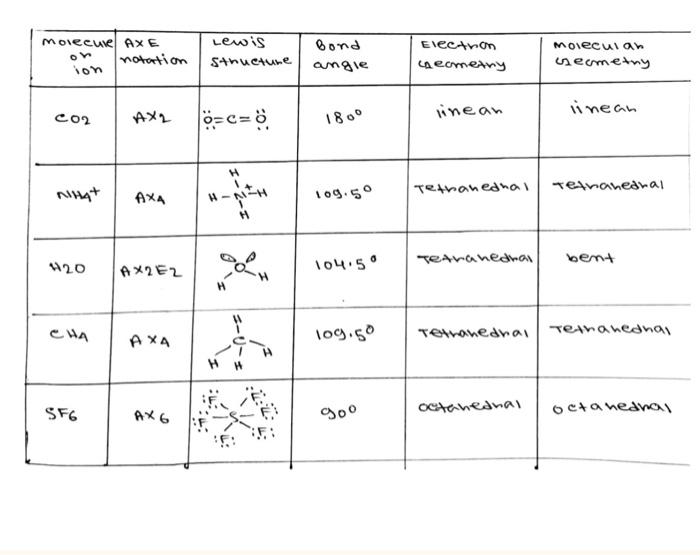 Molecule or ion AXE notation Lewis structure Bond angle Electron Geometry Molecular Geometry
CO2 AX2 Ö=C=Ö 180° linear linear
H
NH4+ AX4 H-N+-H 109.5° Tetrahedral Tetrahedral
H
H2O AX2E2 O H H 104.5° Tetrahedral bent
H
CH4 AX4 C H 109.5° Tetrahedral Tetrahedral
H H
F F
SF6 AX6 F S F 90° octahedral octahedral
F F